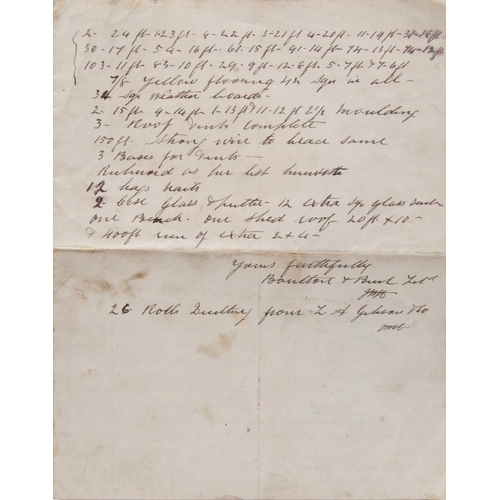 2- 24 ft- 1-23 ft- 9-22 ft- 3-21 ft 4-20 ft. 11-19 ft-
30-17 ft- 54-16 ft- 61-15 ft- 91-14 ft- 74-13 ft- 12 ft
103-11 ft- 83-10 ft- 29-9 ft- 12-8 ft. 5-7 ft & 7-6 ft
7/8 Yellow flooring 42 Sqrs in all-
34 Sqr weather boards-
2- 15 ft 9-14 ft 1-13 ft & 11-12 ft 2 1/2 Moulding
3- Roof Vents complete
150 ft Strong wire to brace same
3 Bases for Vents-
as per list herewith
12 bags nails
2 Case Glass & putter- 12 extra sqr glass each
one Bench- one shed roof 20 ft x 10-
& 400 ft run of extra 2 x 4-
Yours faithfully
Boulton & Paul Ltd
26 Rolls from